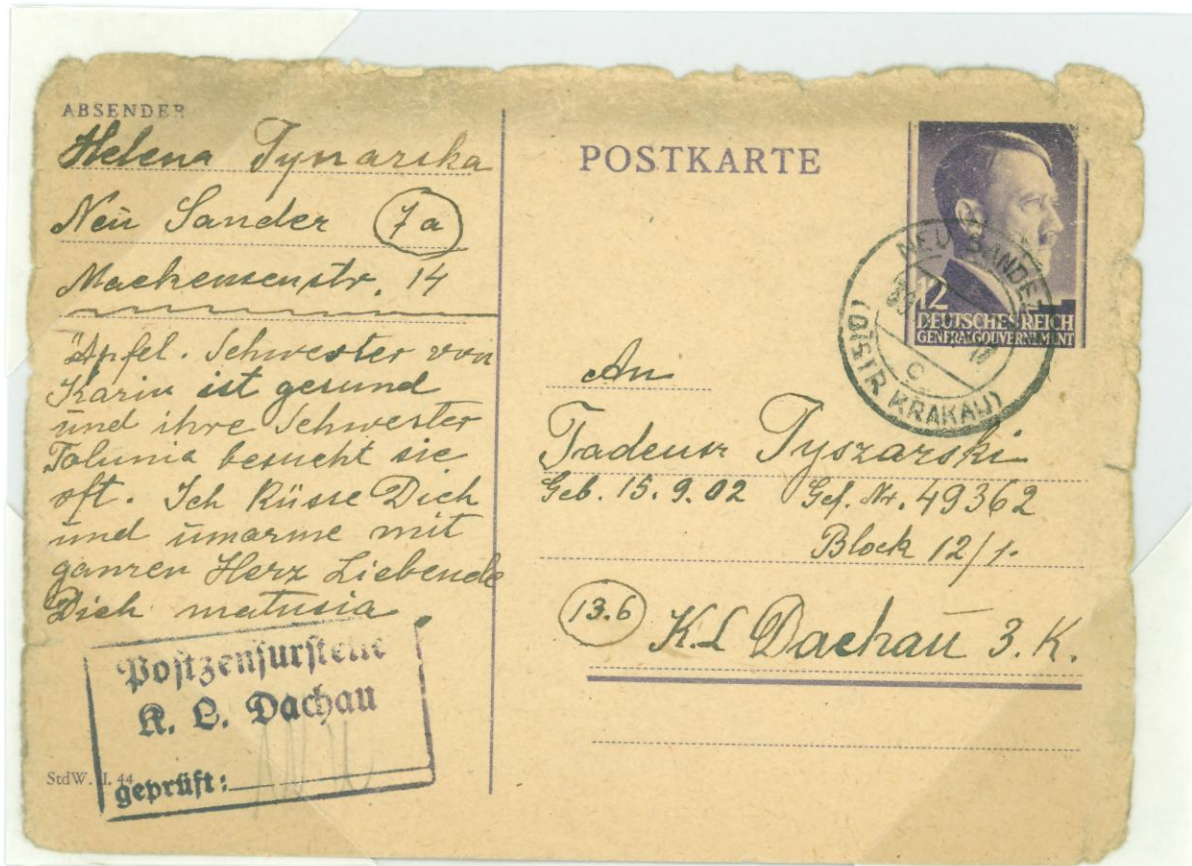 ABSENDER
Helena Tyszarska
Neu Sander 7a
Mackensenstr. 14
Äpfel. Schwester von
Karin ist gesund
und ihre Schwester
Tolunia besucht sie
oft. Ich Küsse Dich
und umarme mit
ganzen Herz Liebende
Dich matusia
Postzensurstelle
K. L. Dachau
geprüft:
StdW. I. 44
POSTKARTE
12
DEUTSCHES REICH
GENERALGOUVERNEMENT
NEU SANDEZ
c
(DISTR KRAKAU)
An
Tadeusz Tyszarski
Geb. 15.9.02 Gef. Nr. 49362
Block 12/1.
13.b K.L Dachau 3. K.